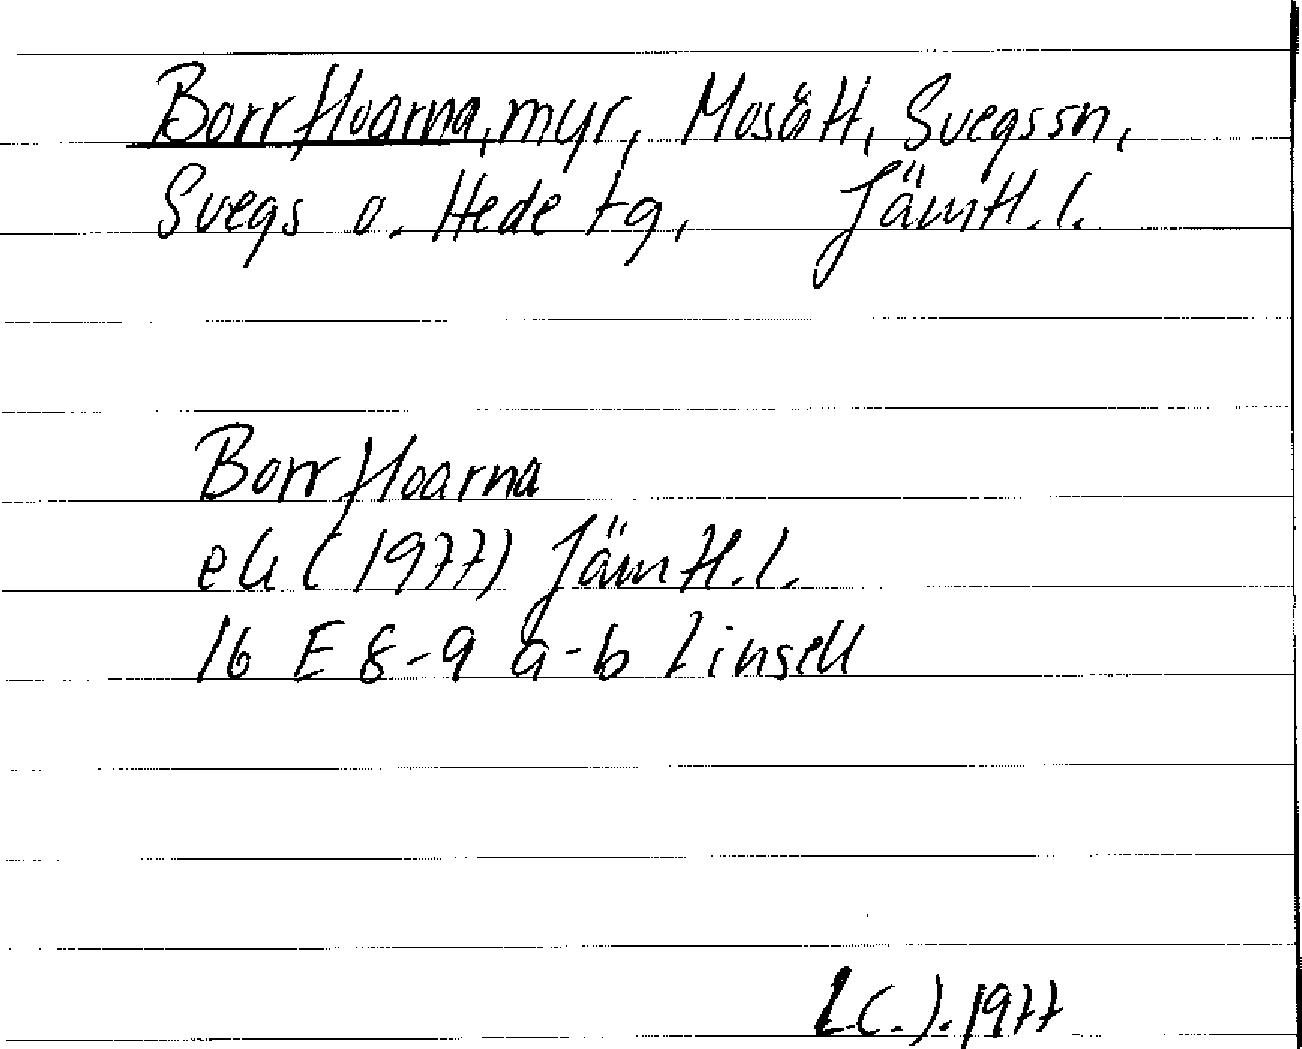 Borrfloarna, myr, Mosätt, Svegs sn,
Svegs o. Hede tg, Jämtl. l.
Borrfloarna
ek (1977) Jämtl. l.
16 E 8-9 a-b Linsell
1977